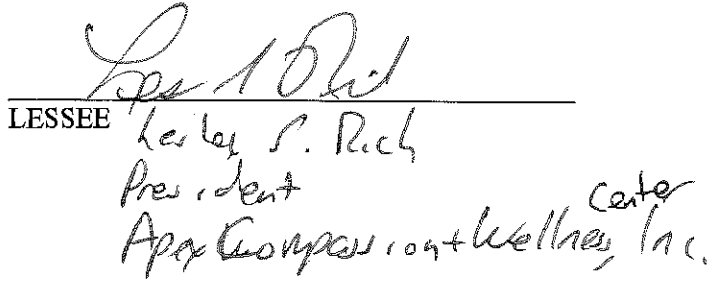 LESSEE Lesley S. Rich
President
Apex Compassion + Wellness Center, Inc.